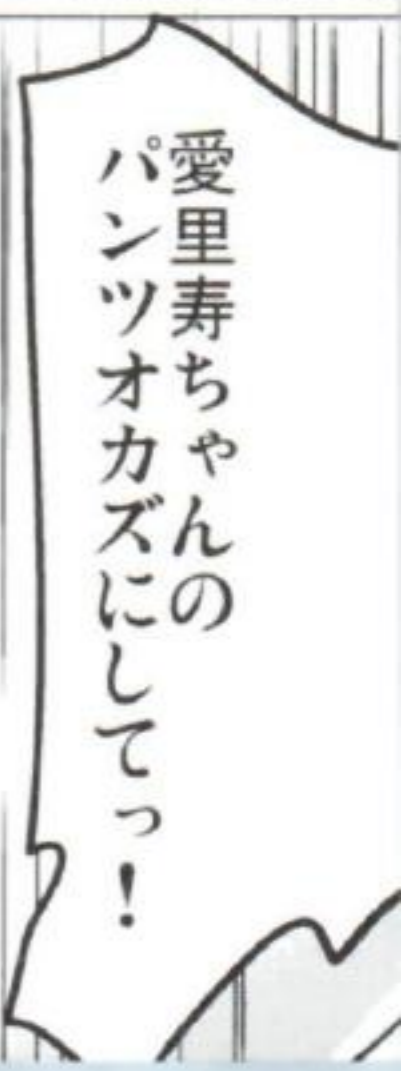 愛里寿ちゃんの
パンツオカズにしてっ！